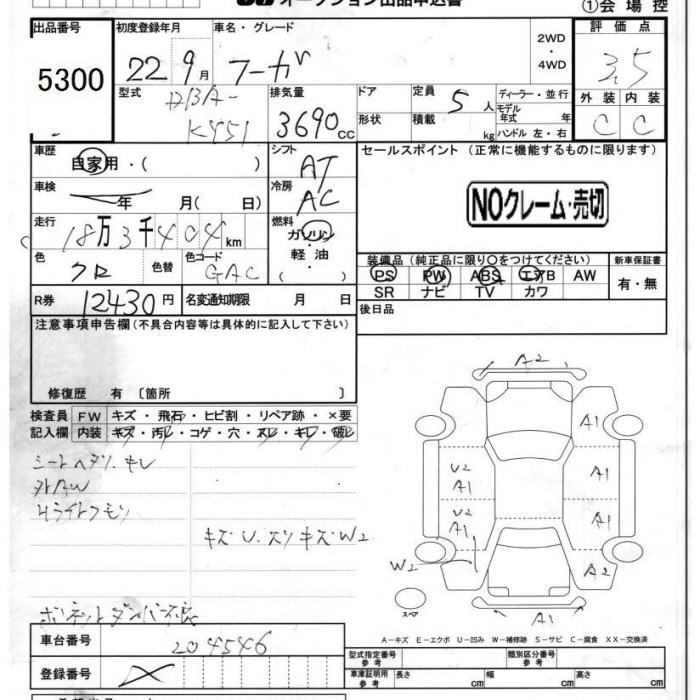 オークション出品申込書
①会場控
出品番号 初度登録年月 車名・グレード 2WD・4WD 評価点
5300 22 9月 フーガ 3.5
型式 DBA-KY51 排気量 3690cc ドア 形状 定員 5人 積載 kg ディーラー・並行 モデル年式 年 ハンドル 左・右 外装 内装
C C
車歴 自家用・( ) シフト AT セールスポイント (正常に機能するものに限ります)
車検 年 月( 日) 冷房 AC NOクレーム・売切
走行 18万3千404km 燃料 ガソリン・軽油・( )
色 クロ 色替 色コード GAC 装備品(純正品に限り〇をつけてください) 新車保証書
PS PW ABS エアB AW 有・無
SR ナビ TV カワ
R券 12430円 名変通知期限 月 日 後日品
注意事項申告欄(不具合内容等は具体的に記入して下さい)
修復歴 有 〔箇所 〕
検査員 FW キズ・飛石・ヒビ割・リペア跡・×要
記入欄 内装 キズ・汚レ・コゲ・穴・スレ・キレ・破レ
シートヘタリ.キレ
外AW
Hライトクモリ
キズ U.スリキズ W2
ボンネットダンパー不良
A2
A1
U2 A1 A1
U2 A1 A1
W2 A2
スペア A1
A-キズ E-エクボ U-凹み W-補修跡 S-サビ C-腐食 XX-交換済
車台番号 204546
型式指定番号 参考 類別区分番号 参考
登録番号
車庫証明用 参考 長さ cm 幅 cm 高さ cm